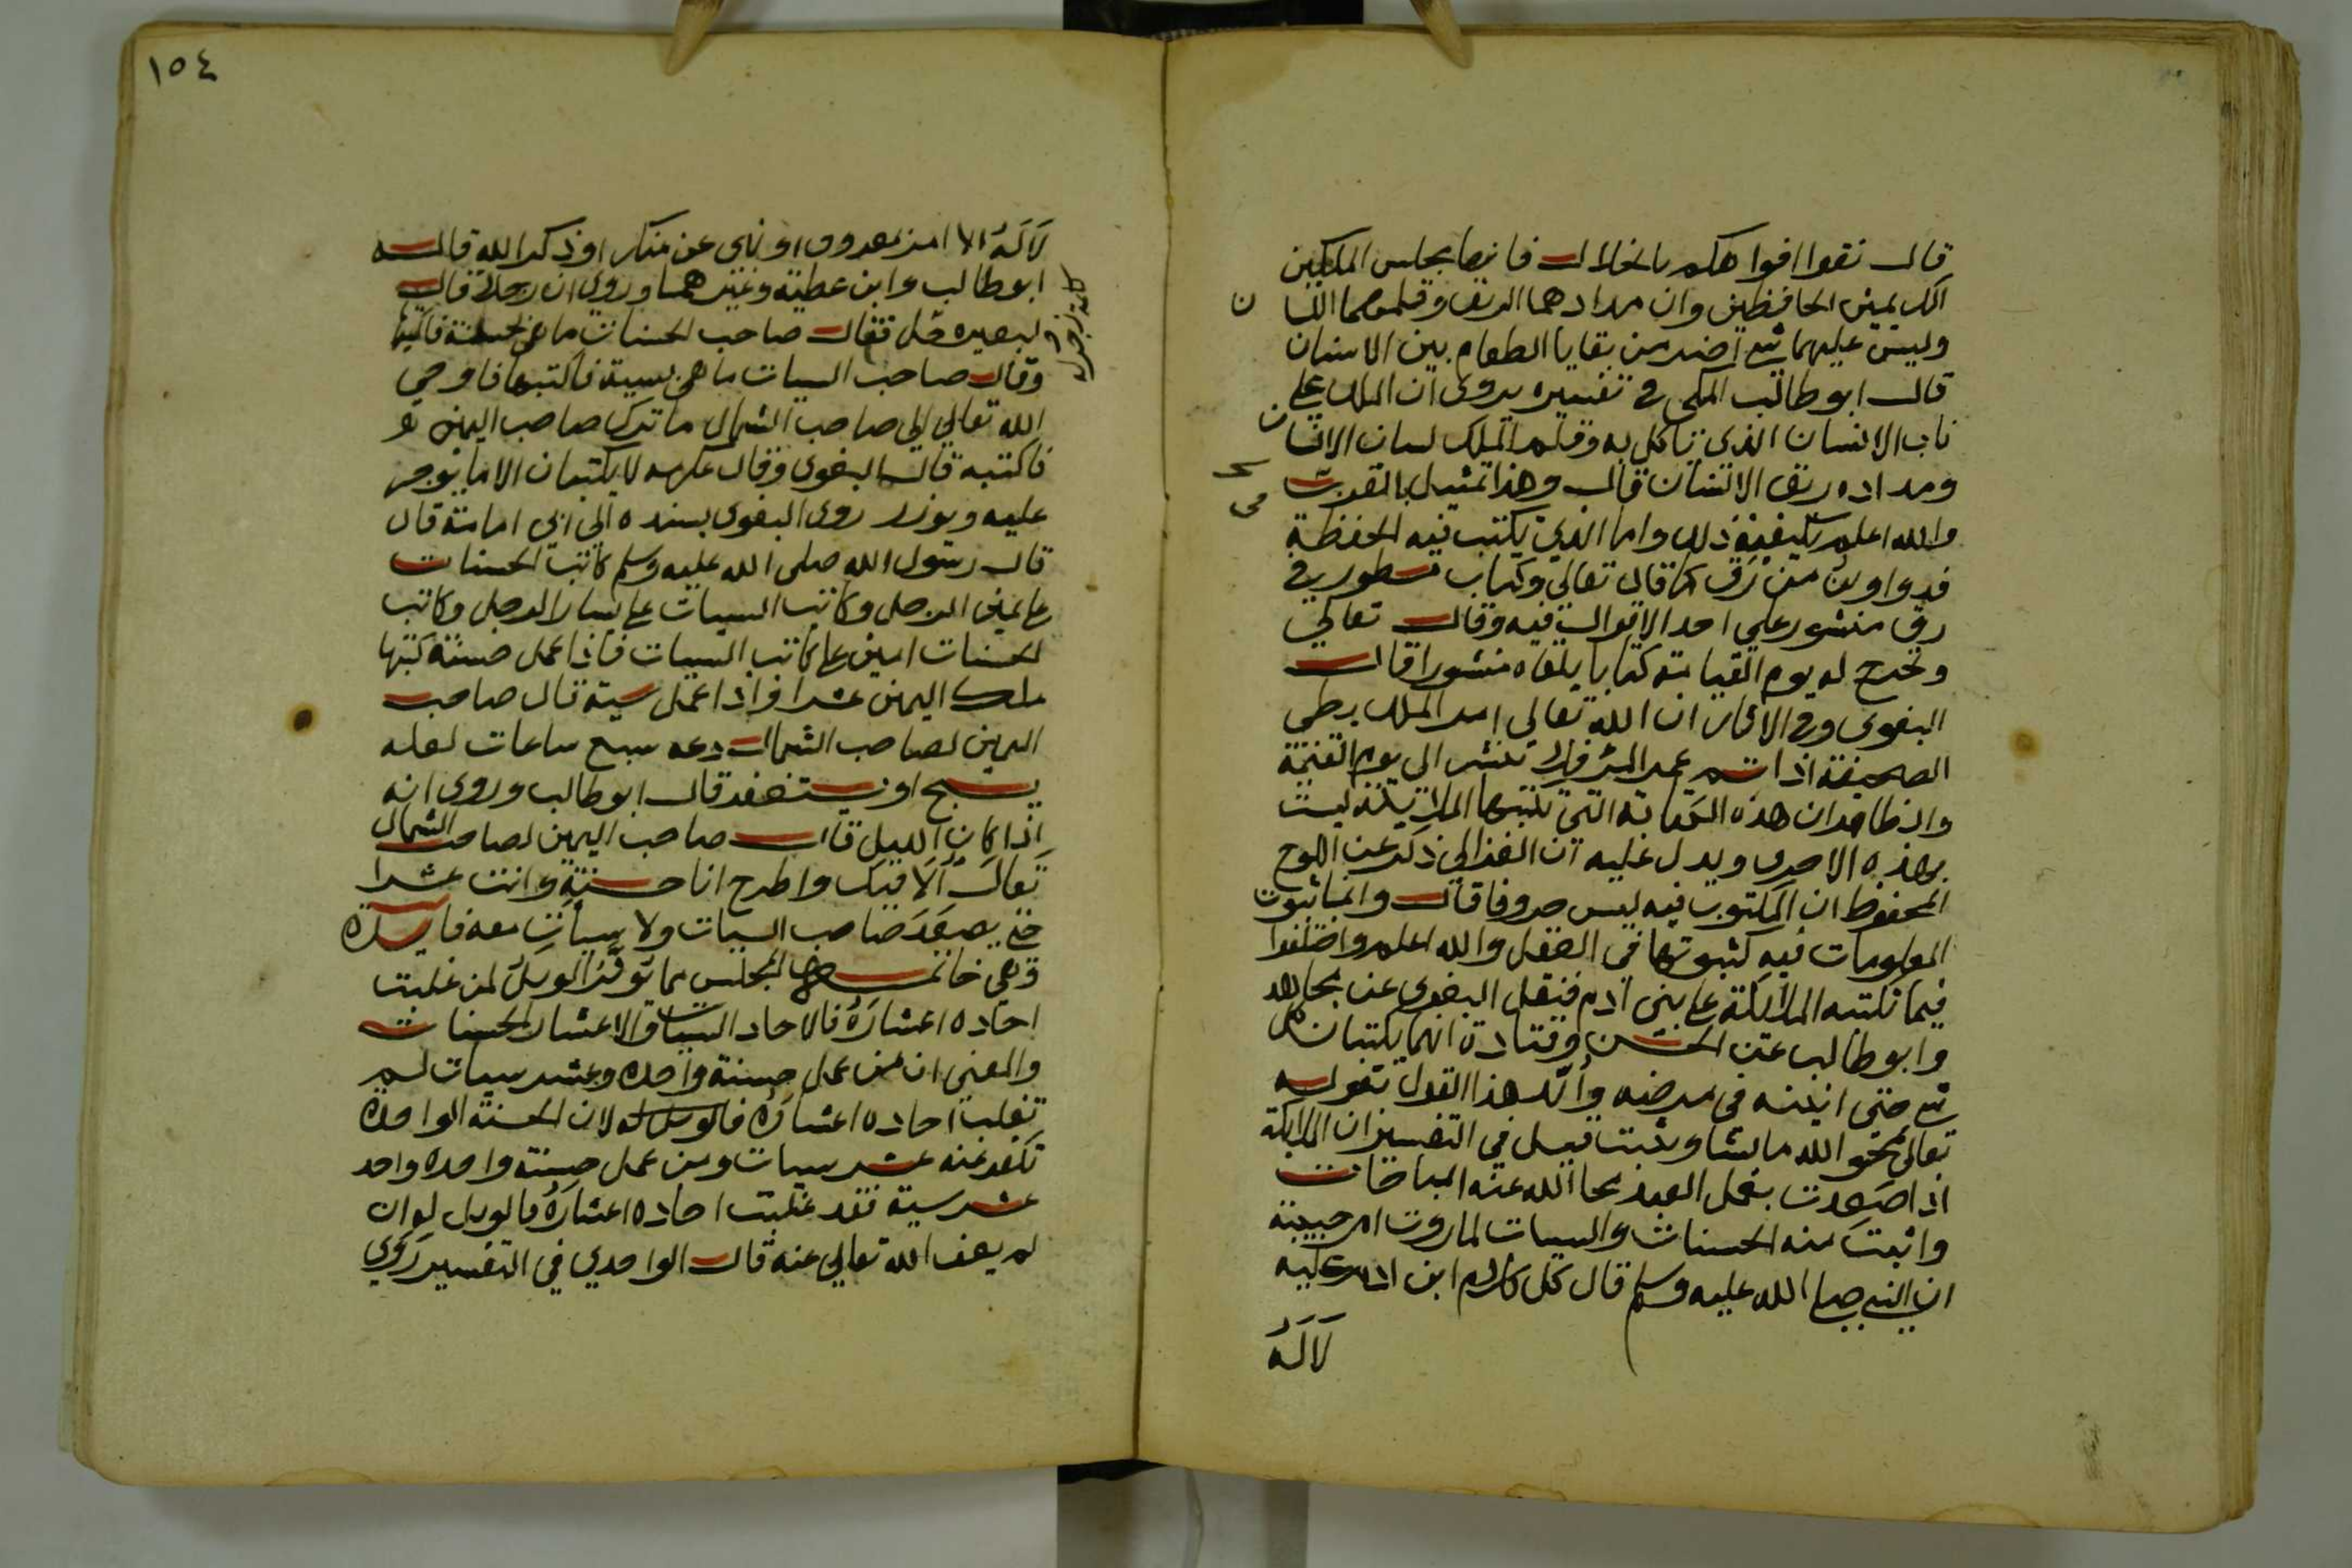 قال نقوا افواهكم بالخلال فانها مجلس الملكين
الكريمين الحافظين وان مدادهما الريق وقلمهما اللسان
وليس عليهما شي اضر من بقايا الطعام بين الاسنان
قال ابو طالب المكي في تفسيره يروى ان الملك على
ناب الانسان الذي تاكل به وقلم الملك لسان الانسان
ومداده ريق الانسان قال وهذا تمثيل بالقرب
والله اعلم بكيفية ذلك واما الذي يكتب فيه الحفظة
فدواوين من رق كما قال تعالى وكتاب مسطور في
رق منشور على احد الاقوال فيه وقال تعالى
ونخرج له يوم القيامة كتابا يلقاه منشورا قال
البغوي وفي الاثار ان الله تعالى امر الملك بطي
الصحيفة اذا تم عمر العبد فلا تنشر الى يوم القيمة
والظاهر ان هذه الكتابة التي تكتبها الملائكة ليست
بهذه الاحرف ويدل عليه ان الغزالي ذكر عن اللوح
المحفوظ ان المكتوب فيه ليس حروفا قال وانما ثبوت
المعلومات فيه كثبوتها في العقل والله اعلم واختلفوا
فيما تكتبه الملائكة على بني آدم فنقل البغوي عن مجاهد
وابو طالب عن الحسن وقتادة انهما يكتبان كل
شي حتى انينه في مرضه وايد هذا القول بقوله
تعالى يمحو الله ما يشا ويثبت قيل في التفسير ان الملائكة
اذا صعدت بعمل العبد محا الله عنه المباحات
واثبت منه الحسنات والسيات لما روت ام حبيبة
ان النبي صلى الله عليه وسلم قال كل كلام ابن ادم عليه
لا له
١٥٤
لا له الا امر بمعروف او نهى عن منكر او ذكر الله قاله
ابو طالب وابن عطية وغيرهما وروي ان رجلا قال
لبعيره حل فقال صاحب الحسنات ما هي بحسنة فاكتبها
وقال صاحب السيات ما هي بسية فاكتبها فاوحى
الله تعالى الى صاحب الشمال ما ترك صاحب اليمين
فاكتبه قال البغوي وقال عكرمه لا يكتبان الا ما يوجر
عليه ويوزر روى البغوي بسنده الى ابي امامة قال
قال رسول الله صلى الله عليه وسلم كاتب الحسنات
على يمين الرجل وكاتب السيات على يسار الرجل وكاتب
الحسنات امين على كاتب السيات فاذا عمل حسنة كتبها
ملك اليمين عشرا واذا عمل سية قال صاحب
اليمين لصاحب الشمال دعه سبع ساعات لعله
يسبح او يستغفر قال ابو طالب وروى انه
اذا كان الليل قال صاحب اليمين لصاحب الشمال
تعال الاقيك واطرح انا حسنة وانت عشرا
حتى يصعد صاحب السيات ولا سيات معه فايدة
وهي خاتمة هذا المجلس مما يوثر الويل لمن غلبت
احاده اعشاره فالاحاد السيات والاعشار الحسنات
والمعنى ان من عمل حسنة واحدة وعشر سيات لم
تغلب احاده اعشاره فالويل له لان الحسنة الواحدة
تكفر عنه عشر سيات ومن عمل حسنة واحدة واحد
عشر سية فقد غلبت احاده اعشاره فالويل له ان
لم يعف الله تعالى عنه قال الواحدي في التفسير روي